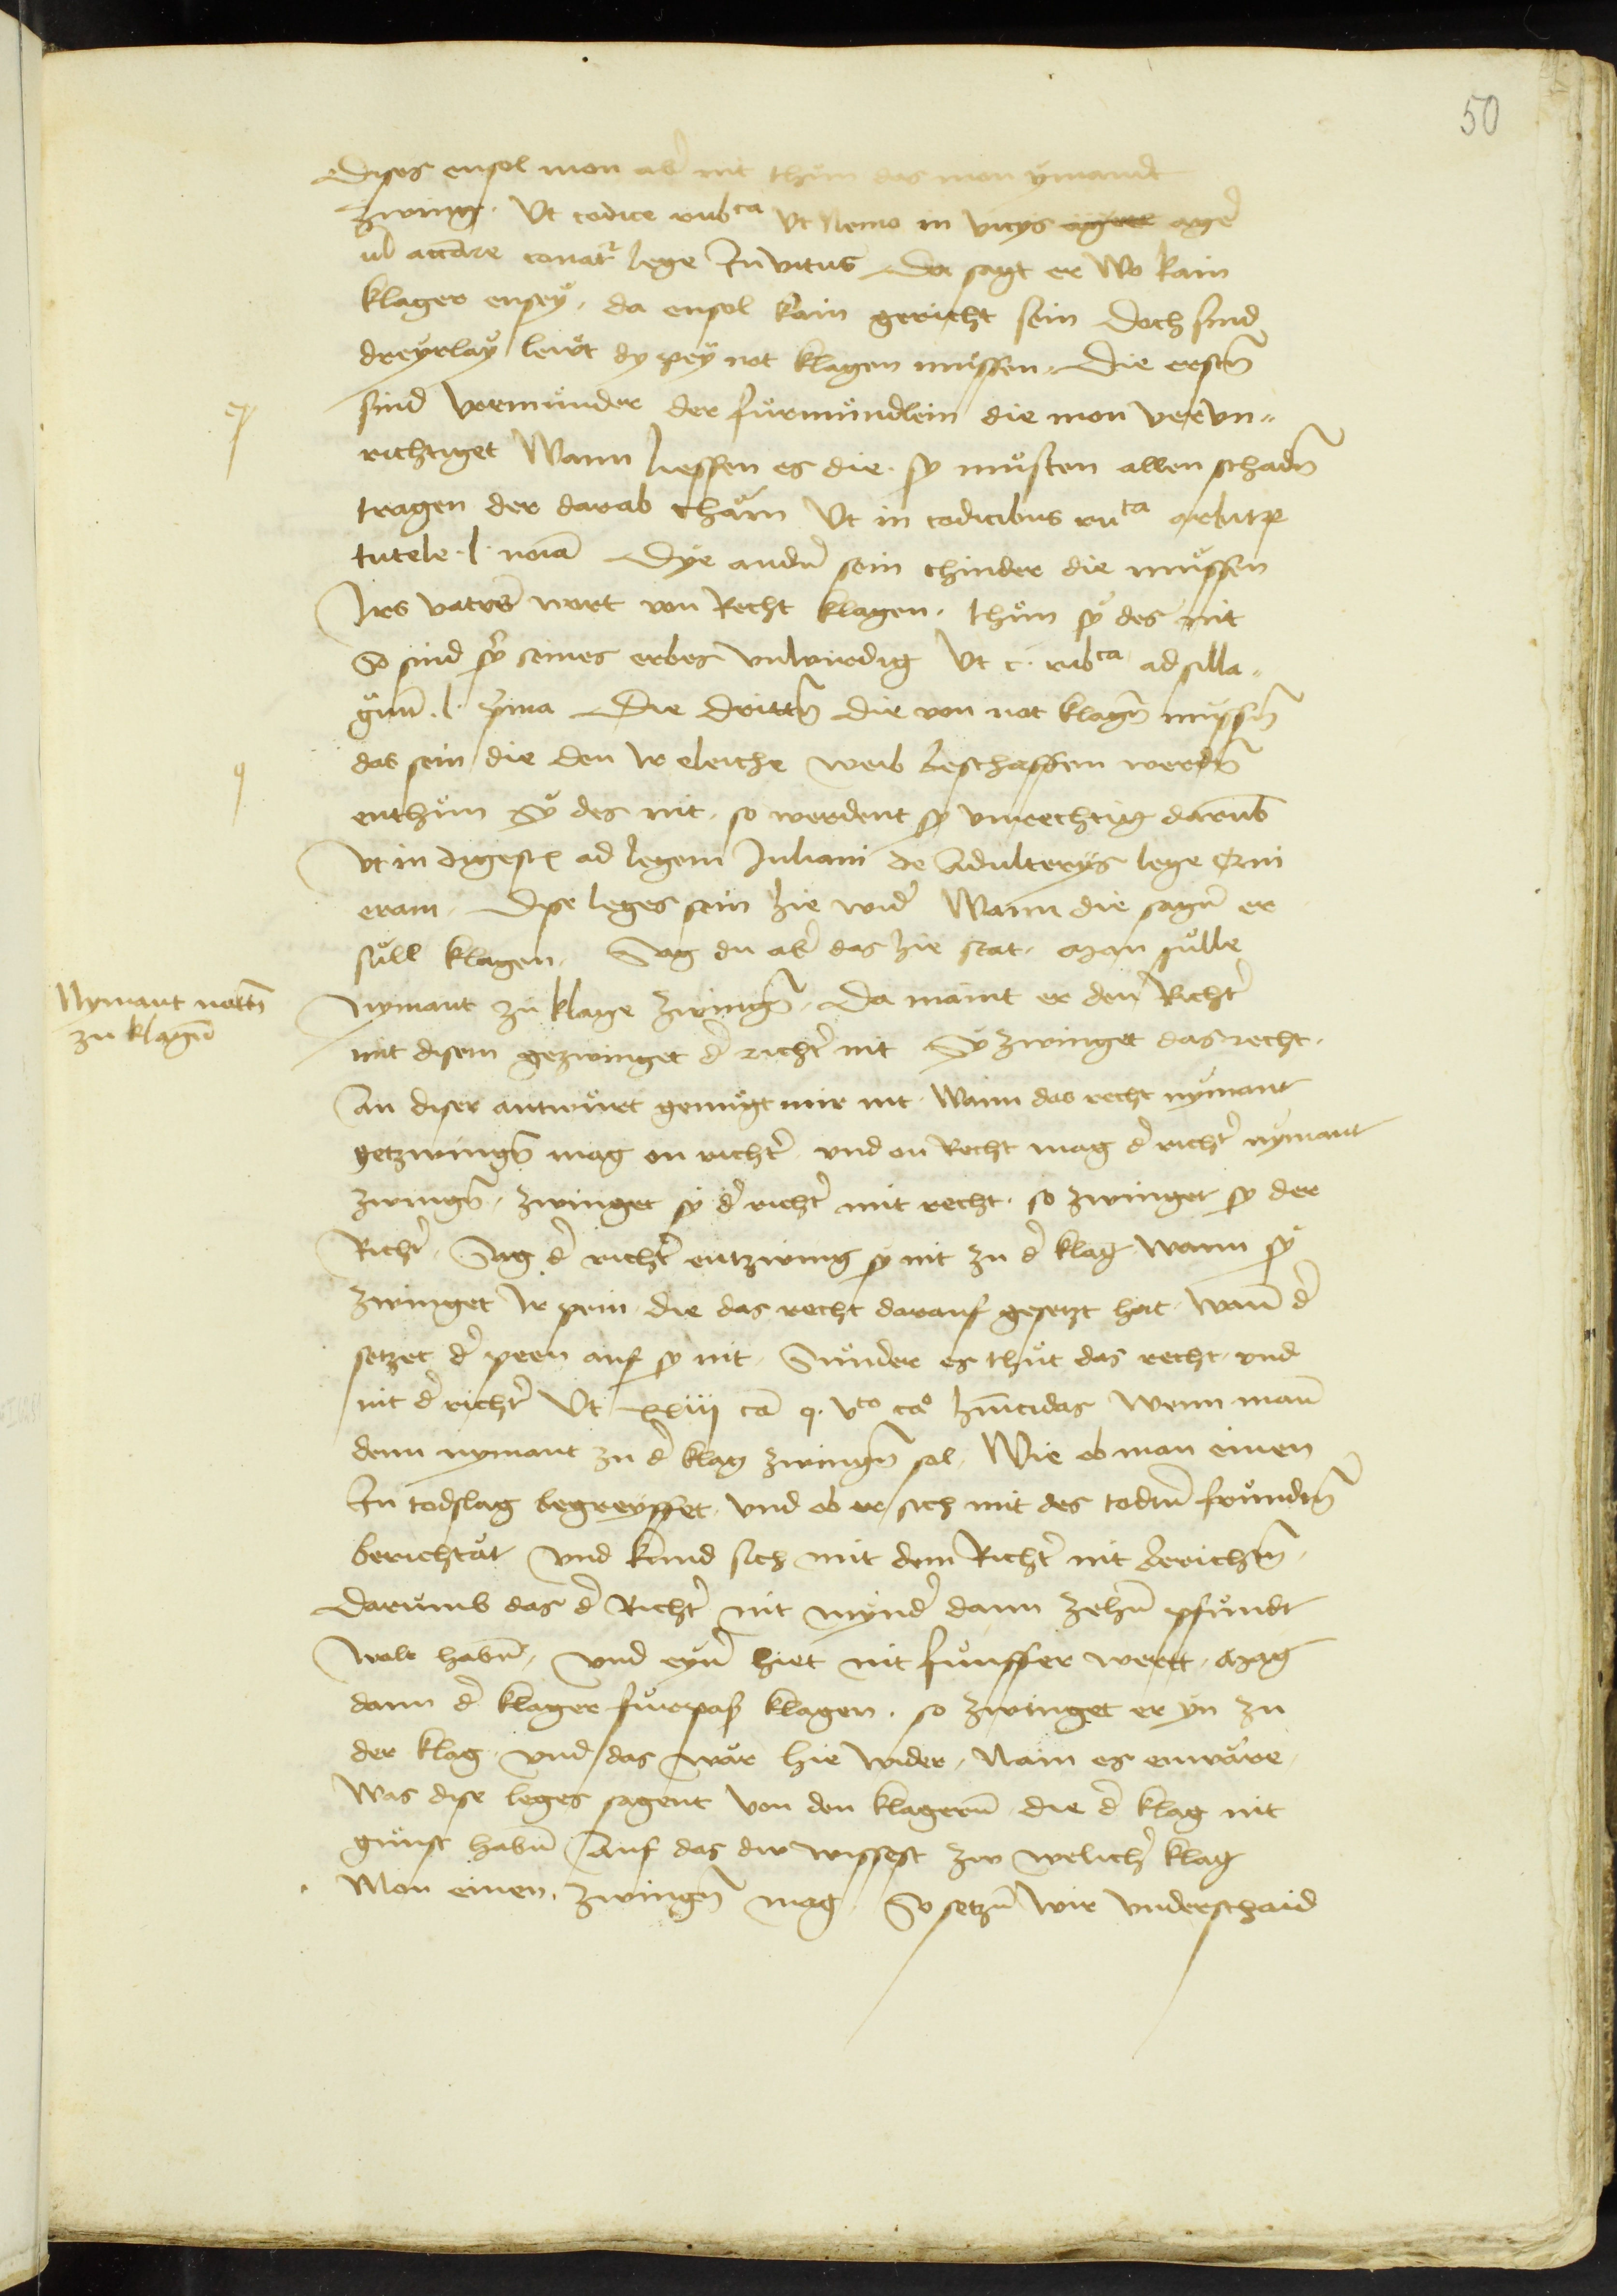 50
Dises ensol mon ab̾ nit thuͤn das mon ymandt
zwing. Ut codice rubca Ut Nemo in vitus agere age̾
ul̾ accūre conatr̾ lege Inuitus Da sagt er Wo kain
klager ensey, da ensol kain gericht sein Doch sind
dreyrlay leuͤt dy pey not klagen muͤssen. Die erstn̄
sind vormuͤnder der fuͤrmuͤndlein die mon verun⸗
richtiget Wann liessen es die. sy muͤsten allen schadn̄
tragen der darab chaͤm Ut in codicibus ruca arbitr
tutele. l. noīa Dye andn̄ sein chinder die muͤssen
Irs vaters wort von Recht klagen. thuͤn sy des nit
So sind sy seines erbes unwirdig Ut c. rubca ad silla⸗
gnū. l. p̾ma Die drittn̄ die von not klagn̄ muͤssn̄
das sein die den ir eleiche weib beschaffen werdn̄
enthuͤn sy des nit. so werdent sy unrechtig darūb
Ut in digest ad legem Juliam de Adulterys lege Qui
eram. Dise leges sein hie wid̾ Wann die sagn̄ er
suͤll klagen. Sag du ab̾ das hie stat. man suͤlle
nymant zu klage zwingn̄. Da maint er den Richt̾
mit disem gezwinget d̾ richt̾ nit Sy zwinget das recht.
An diser antwuͤrt genuͤgt mir nit. Wann das recht nymant
getzwingn̄ mag on richt̾ und on Recht mag d̾ richt̾ nymant
zwingn̄. Zwinget sy d̾ richt̾ mit recht. so zwinget sy der
Richt̾. Sag d̾ richt̾ entzwing sy nit zu d̾ klag Wann sy
zwinget ir pein. die das recht darauf gesetzt hat. Wan̄ d̾
setzet d̾ peen auf sy nit. Suͤnder es thuͤt das recht. und
nit d̾ richt̾ Ut xxiij cā q. vto cao hiīcidas Wenn man̄
denn nymant zu d̾ klag zwingn̄ sol. Wie ob man einen
In todslag begreyffet. und ob er sich mit des todtn̄ fruͤndtn̄
berichtaͤt und kund sich mit dem Richt̾ nit berichtn̄.
Darumb das d̾ Richt̾ nit mynd̾ dann zehn̄ pfuͤndt
wolt habn̄, und eyn̄ hiet nit fuͤnffer wertt. Mag
dann d̾ klager fuͤrpaß klagen. so zwinget er yn zu
der klag. und das waͤr hie wider. Nain es enwaͤre.
Was dise leges sagent von den klagern̄ die d̾ klag nit
guͤnst habn̄ Auf das dw wissest zw welich̾ klag
Mon einen zwingn̄ mag. So setzn̄ wir underschaid
Nymant nottn̄
zu klagn̄